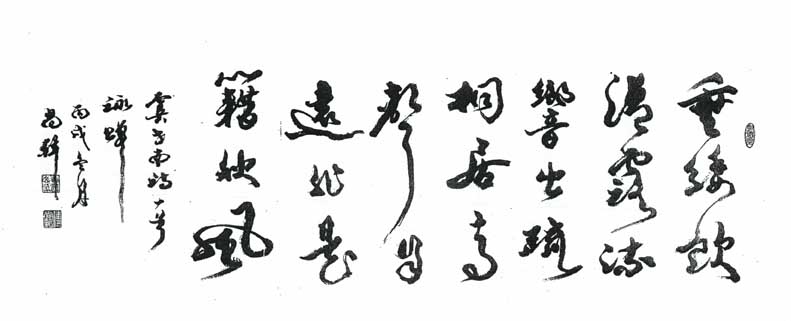 垂緌飲
清露流
響出疏
桐居高
聲自
遠非是
籍秋風
虞世南詩一首
詠蟬
丙戌冬月